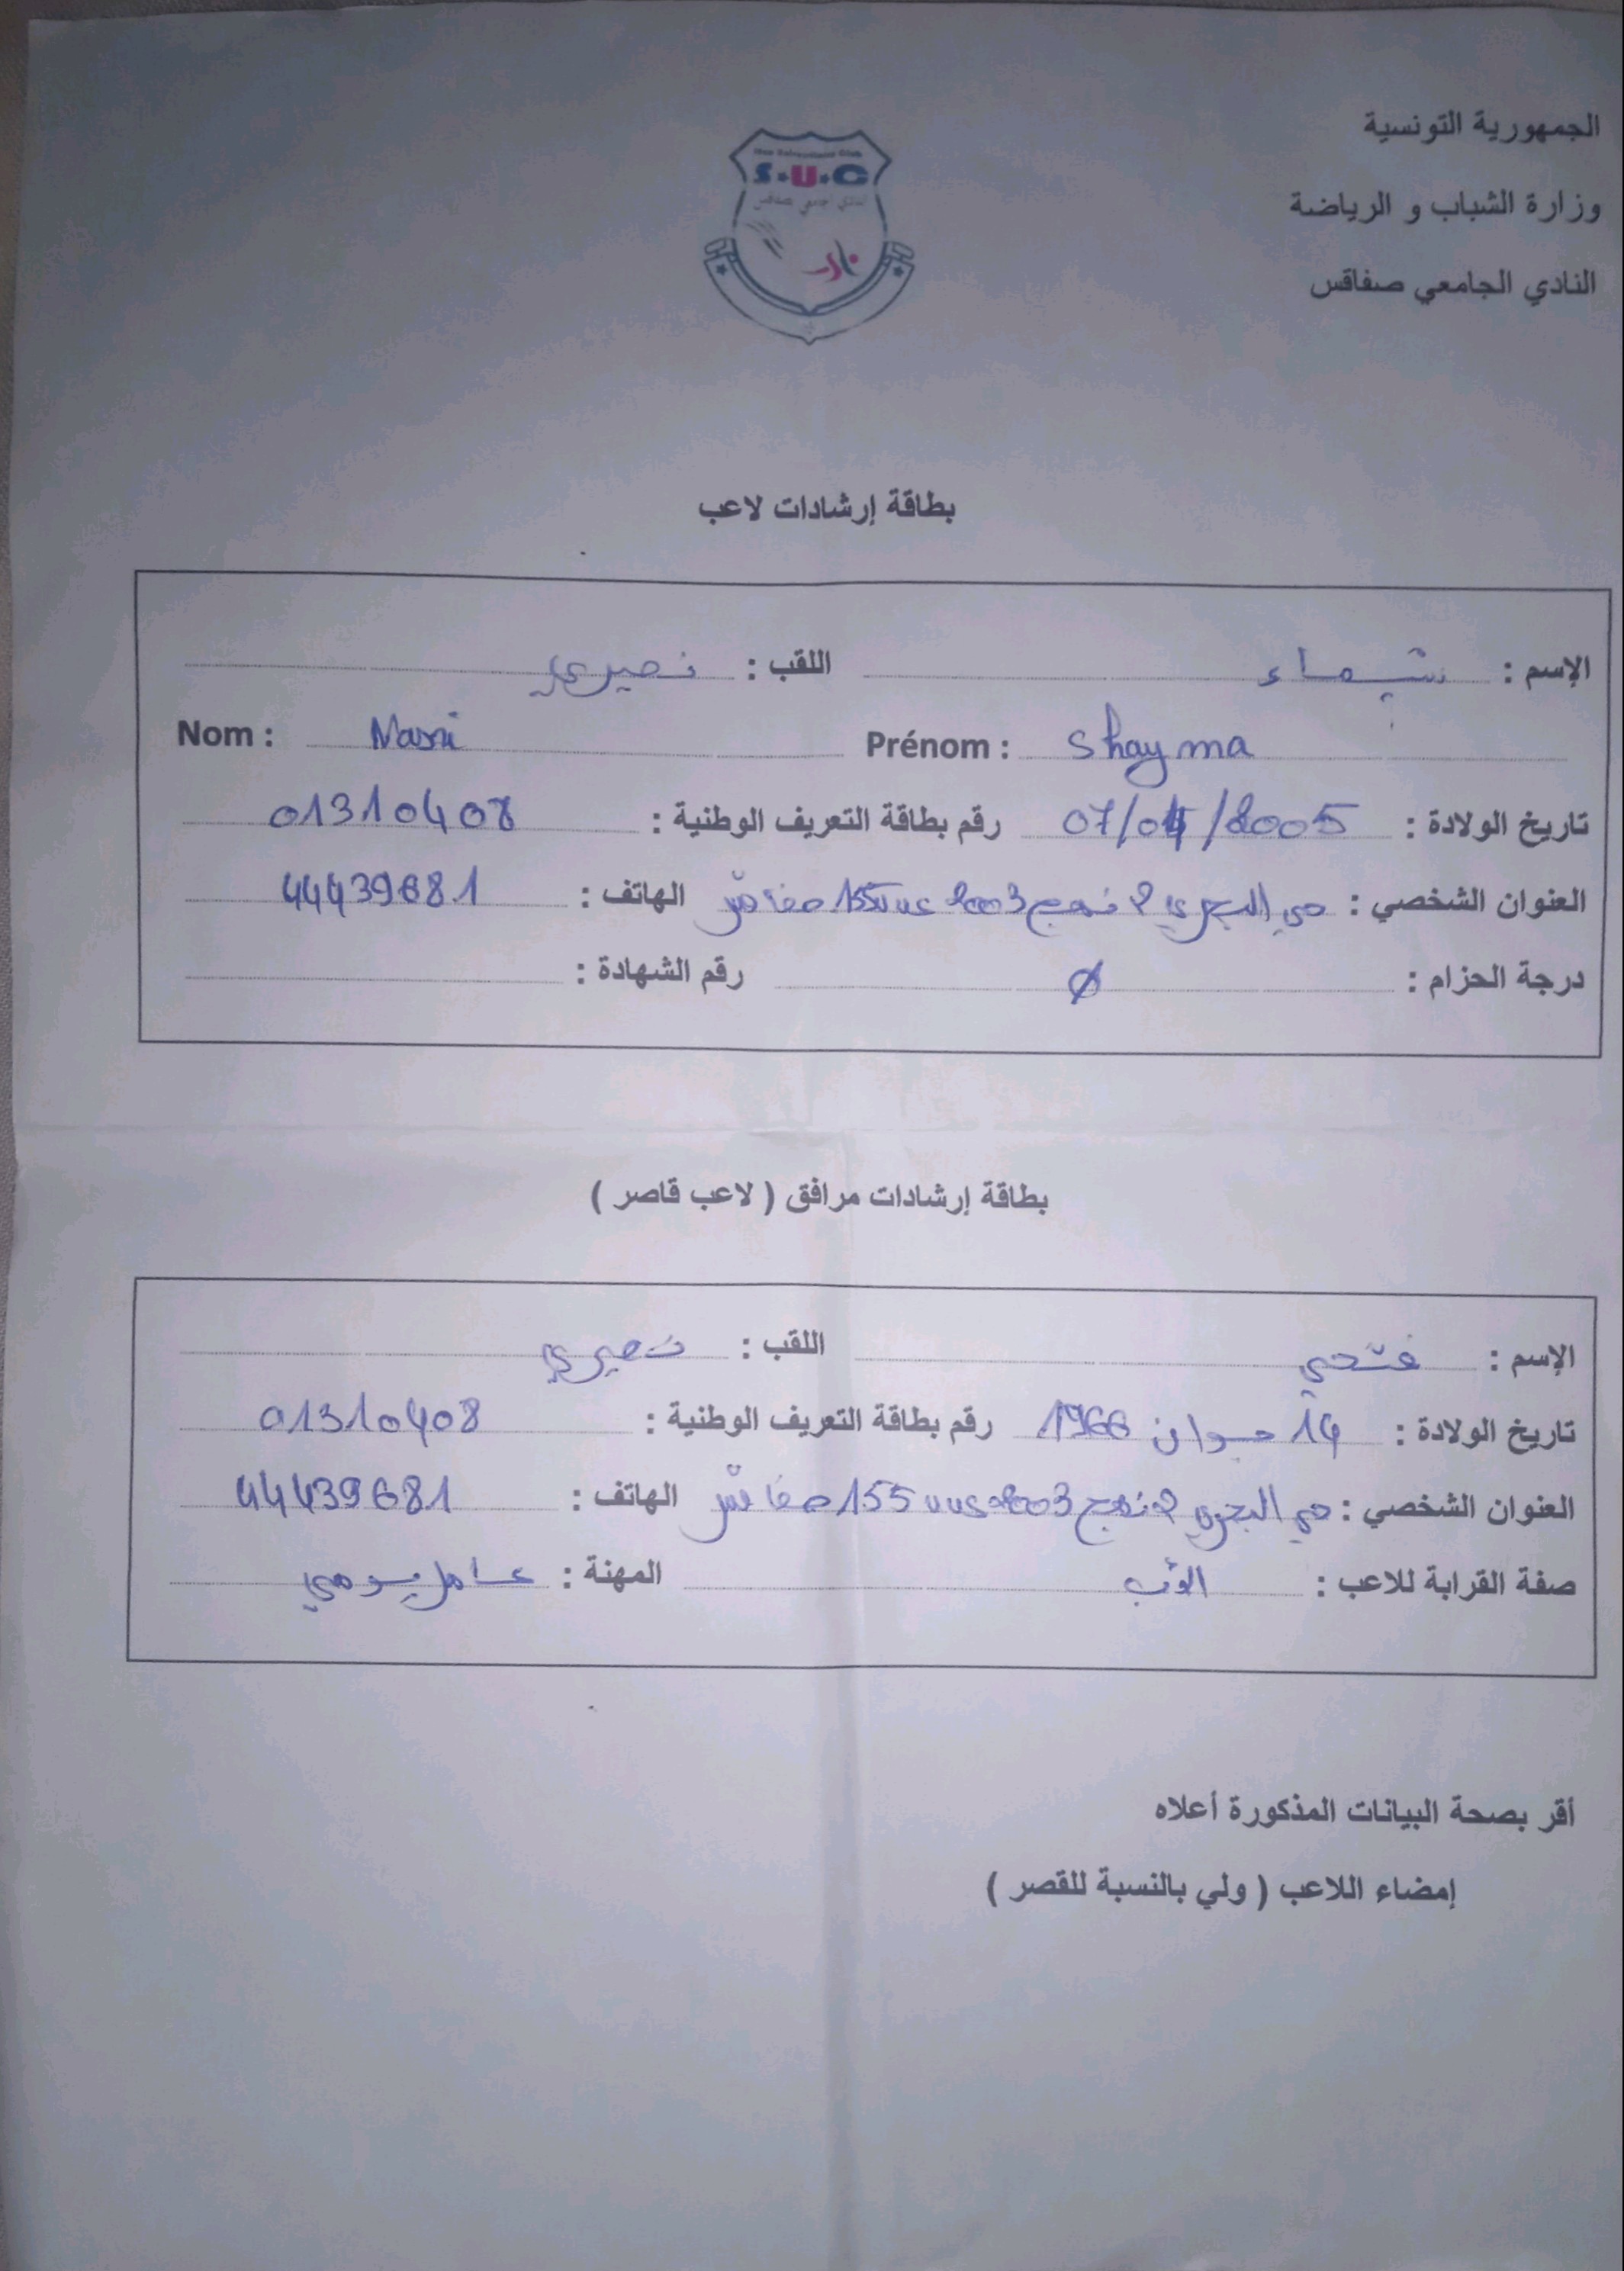 الجمهورية التونسية
وزارة الشباب و الرياضة
النادي الجامعي صفاقس
S.U.C
بطاقة إرشادات لاعب
الإسم : شيماء اللقب : نصيري
Nom : Nasri Prénom : Shayma
تاريخ الولادة : 07/04/2005 رقم بطاقة التعريف الوطنية : 01310408
العنوان الشخصي : حي البحري 2 نهج 2003 عدد 155 صفاقس الهاتف : 44439681
درجة الحزام : Ø رقم الشهادة :
بطاقة إرشادات مرافق ( لاعب قاصر )
الإسم : فتحي اللقب : نصيري
تاريخ الولادة : 14 جوان 1966 رقم بطاقة التعريف الوطنية : 01310408
العنوان الشخصي : حي البحري 2 نهج 2003 عدد 155 صفاقس الهاتف : 44439681
صفة القرابة للاعب : الأب المهنة : عامل يومي
أقر بصحة البيانات المذكورة أعلاه
إمضاء اللاعب ( ولي بالنسبة للقصر )